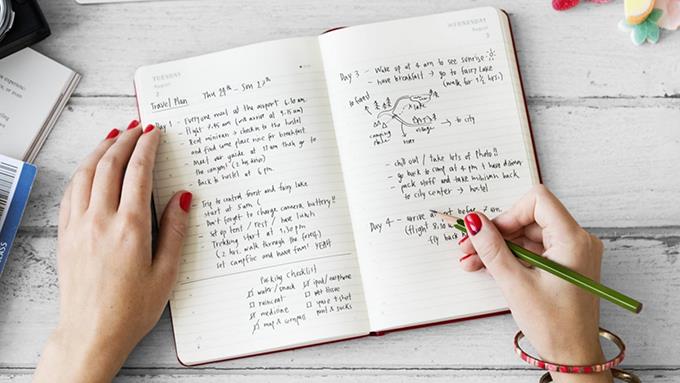 TUESDAY
August
2
Travel Plan
Thu 29th - Sun
Day 1 - Everyone meet at the airport 6.30 am
flight 7.45 am (will arrive at 9.15 am)
Real minivan → checkin to the hostel
and find some place nice for breakfast
- Meet our guide at 11 am then go to
the (2 by
- Back to hostel at 6 pm
- Trip to control forest and fairy lake
start at 5 am (
Don't forget to charge camera battery!!
Set up tent / rest / have lunch
Trekking start at 1.30 pm
(2 hrs. walk through the forest)
set campfire and have fun! YEAH
Packing Checklist
water / snack
raincoat
medicine
map & compass
ipod / earphone
wet tissue
spare t-shirt
pant & socks
WEDNESDAY
August
3
Day 3 - Wake up at 4 am to see sunrise
- have breakfast → go to fairy lake
(walk for 1 1/2 hrs)
to forest
camping
place
village
→ to city
- chill out / take lots of photo!!
- go back to camp at 4 pm + have dinner
- pack stuff and take minivan back
to city center → hostel
Day 4 - arrive at before
(flight 8.30
fly back